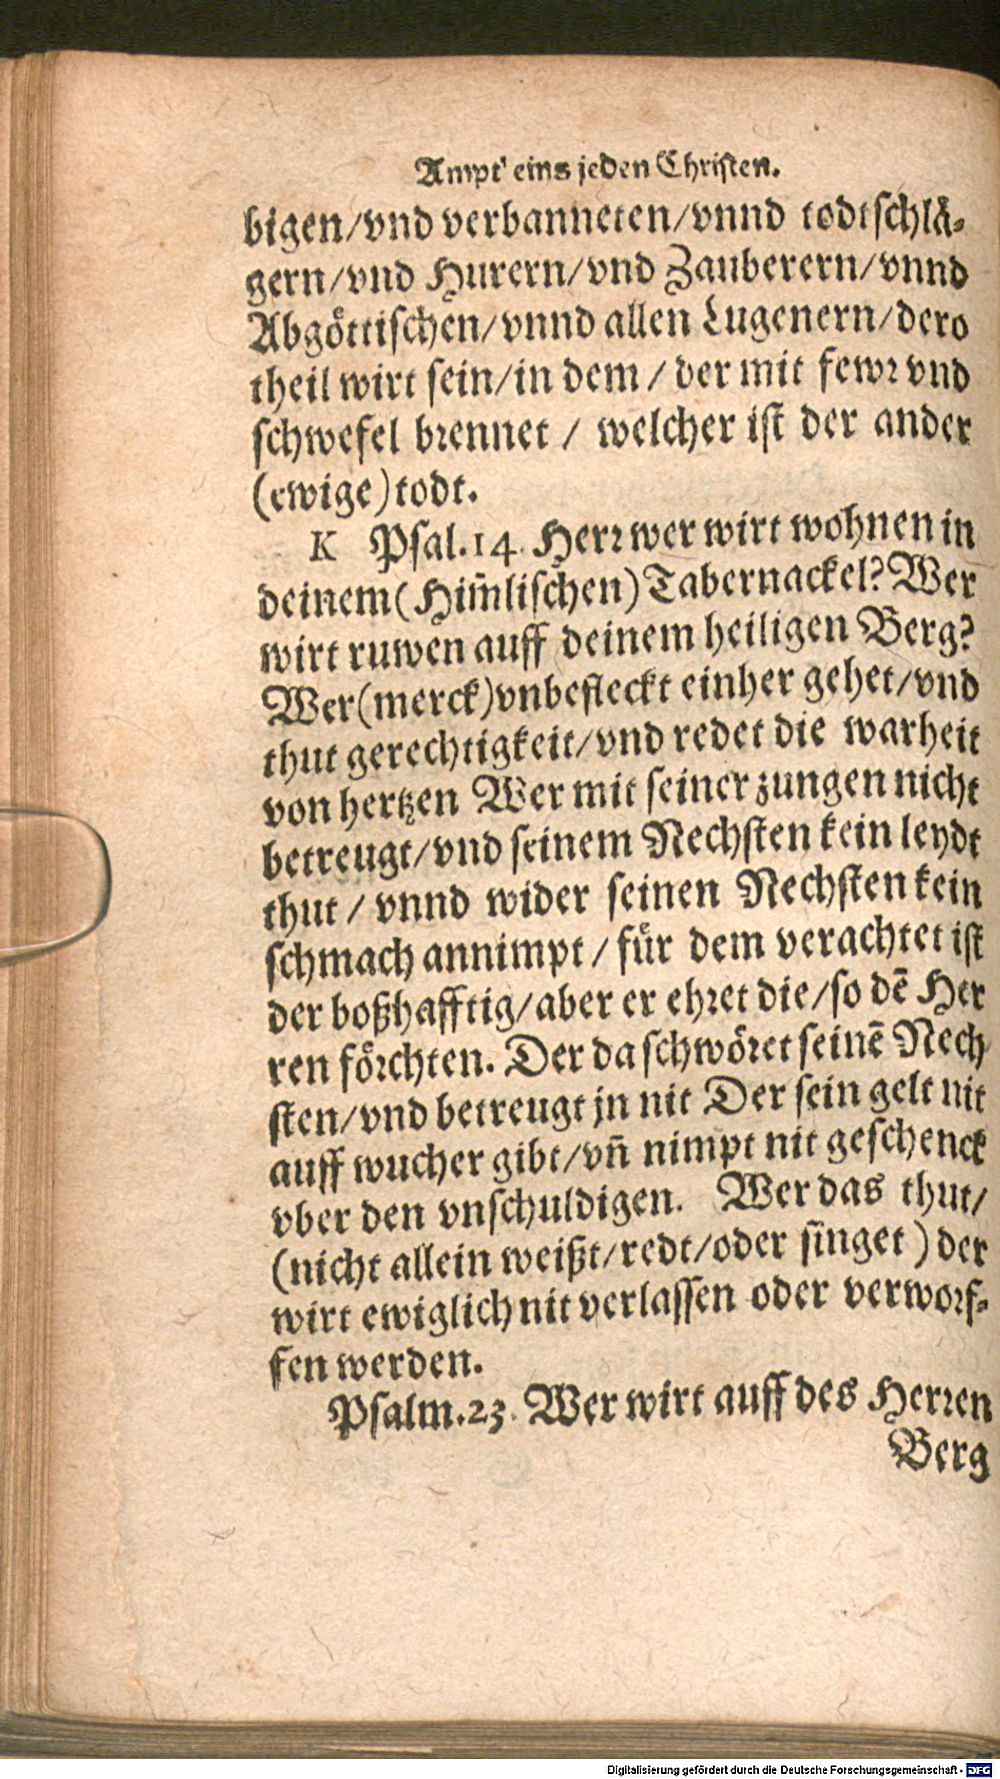 Ampt eins jeden Christen.
bigen/vnd verbanneten/vnnd todtschlå-
gern/vnd Hurern/vnd Zauberern/vnnd
Abgöttischen/vnnd allen Lugenern/dero
theil wirt sein/in dem / der mit fewr vnd
schwefel brennet / welcher ist der ander
(ewige) todt.
K Psal.14. Herr wer wirt wohnen in
deinem (Him̃lischen) Tabernackel? Wer
wirt ruwen auff deinem heiligen Berg?
Wer (merck) vnbefleckt einher gehet/vnd
thut gerechtigkeit/vnd redet die warheit
von hertzen Wer mit seiner zungen nicht
betreugt/vnd seinem Nechsten kein leydt
thut / vnnd wider seinen Nechsten kein
schmach annimpt / für dem verachtet ist
der boßhafftig/aber er ehret die/so dē Her
ren förchten. Der da schwöret seinē Nech
sten/vnd betreugt jn nit Der sein gelt nit
auff wucher gibt/vñ nimpt nit geschenck
vber den vnschuldigen. Wer das thut/
(nicht allein weißt/redt/oder singet) der
wirt ewiglich nit verlassen oder verworf-
fen werden.
Psalm.23. Wer wirt auff des Herren
Berg
Digitalisierung gefördert durch die Deutsche Forschungsgemeinschaft - DFG